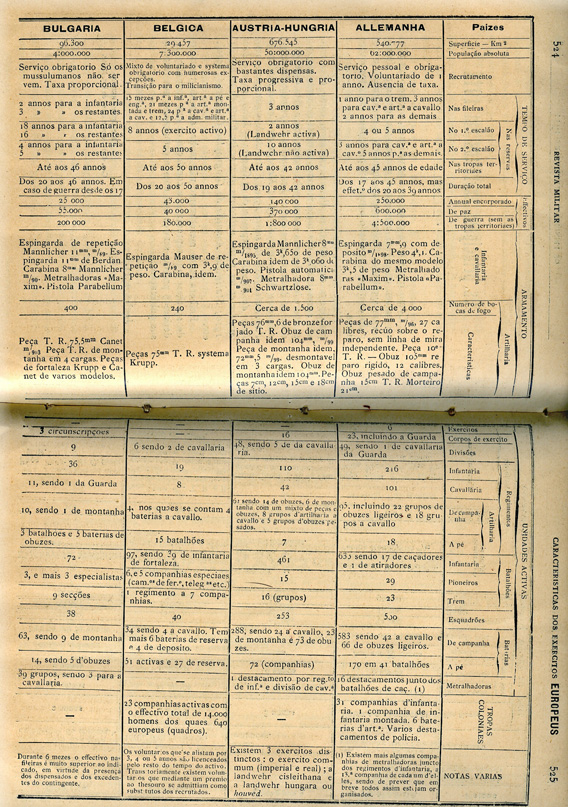 BULGARIA BELGICA AUSTRIA-HUNGRIA ALLEMANHA Paizes
96.300 29.457 676.545 540.777 Superficie — Km²
4:000.000 7:300.000 50:000.000 62:000.000 População absoluta
Serviço obrigatorio Só os mussulumanos não servem. Taxa proporcional.
Mixto de voluntariado e systema obrigatorio com numerosas excepções.
Transição para o milicianismo.
Serviço obrigatorio com bastantes dispensas. Taxa progressiva e proporcional.
Serviço pessoal e obrigatorio. Voluntariado de 1 anno. Ausencia de taxa.
Recrutamento
2 annos para a infantaria
3 » » os restantes
3 annos
1 anno para o trem. 3 annos para cav.ª e art.ª a cavallo
2 annos para as demais
Nas fileiras
18 annos para a infantaria
16 » » os restantes
8 annos (exercito activo)
2 annos
(Landwehr activa)
4 ou 5 annos
No 1.º escalão
4 annos para a infantaria
5 » » os restantes
5 annos
10 annos
(Landwehr não activa)
3 annos para cav.ª e art.ª a cav.º 5 annos p.ª as demais
No 2.º escalão
Até aos 46 annos Até aos 50 annos Até aos 42 annos Até aos 45 annos de edade
Nas tropas territoriaes
Nas reservas
Dos 20 aos 46 annos. Em caso de guerra desde os 17
Dos 20 aos 50 annos
Dos 19 aos 42 annos
Dos 17 aos 45 annos, mas effect.º dos 20 aos 39 annos
Duração total
TEMPO DE SERVIÇO
25 000 43.000 140 000 250.000 Annual encorporado
55.000 40 000 370 000 600.000 De paz
200 000 180.000 1:800.000 4:500.000 De guerra (sem as tropas territoriaes)
Effectivos
Espingarda de repetição Mannlicher 11mm, m/88. Espingarda 11mm de Berdan. Carabina 8mm Mannlicher m/95. Metralhadoras «Maxim». Pistola Parabelium
Espingarda Mauser de repetição m/89 com 3k,9 de peso. Carabina, idem.
Infantaria e cavallaria
400 240 Cerca de 1.500 Cerca de 4 000
Numero de bocas de fogo
Peça T. R. 75,5mm Canet m/903 Peça T. R. de montanha em 4 cargas. Peças de fortaleza Krupp e Canet de varios modelos.
Peças 75mm T. R. systema Krupp.
Peças 76mm,6 de bronze forjado T. R. Obuz de campanha idem 104mm, m/99 Peça de montanha idem, 72mm,5 m/99. desmontavel em 3 cargas. Obuz de montanha idem 104mm. Peças 7cm, 12cm, 15cm e 18cm de sitio.
Peças de 77mm, m/96, 27 calibres, recúo sobre o reparo, sem linha de mira independente. Peça 10cm T. R. — Obuz 105mm reparo rigido, 12 calibres. Obuz pesado de campanha 15cm T. R. Morteiro 21cm.
Caracteristicas
Artilharia
ARMAMENTO
524
REVISTA MILITAR
Exercitos
3 circunscripções — 16 23, incluindo a Guarda Corpos de exercito
9 6 sendo 2 de cavallaria 48, sendo 5 de da cavallaria. 49, sendo 1 de cavallaria da Guarda Divisões
36 19 110 216 Infantaria
11, sendo 1 da Guarda 8 42 101 Cavallaria
10, sendo 1 de montanha
4, nos quaes se contam 4 baterias a cavallo.
61 sendo 14 de obuzes, 6 de montanha com um mixto de peças e obuzes, 8 grupos d'artilharia a cavallo e 5 grupos d'obuzes pesados.
95, incluindo 22 grupos de obuzes ligeiros e 18 grupos a cavallo
De campanha
3 batalhões e 5 baterias de obuzes. 15 batalhões 7 18 A pé
Artilharia
Regimentos
72 97, sendo 39 de infantaria de fortaleza. 461 633 sendo 17 de caçadores e 1 de atiradores Infantaria
3, e mais 3 especialistas 6, e 5 companhias especiaes 15 29 Pioneiros
9 secções 1 regimento a 7 companhias. 16 (grupos) 23 Trem
Batalhões
38 40 253 530 Esquadrões
63, sendo 9 de montanha
34 sendo 4 a cavallo. Tem mais 6 baterias de reserva e 4 de deposito.
288, sendo 24 a cavallo, 23 de montanha e 73 de obuzes.
583 sendo 42 a cavallo e 66 de obuzes ligeiros.
De campanha
14, sendo 5 d'obuzes 51 activas e 27 de reserva. 72 (companhias) 170 em 41 batalhões A pé
Baterias
39 grupos, sendo 3 para a cavallaria. — 1 destacamento por reg.to de inf.ª e divisão de cav.ª 16 destacamentos junto dos batalhões de caç. (1) Metralhadoras
UNIDADES ACTIVAS
—
23 companhias activas com o effectivo total de 14.000 homens dos quaes 640 europeus (quadros).
—
31 companhias d'infantaria. 1 companhia de infantaria montada. 6 baterias d'art.ª. Varios destacamentos de policia.
TROPAS COLONIAES
Durante 6 mezes o effectivo nas fileiras é muito superior ao indicado, em virtude da presença dos dispensados e dos excedentes do contingente.
Os voluntarios que se alistam por 3, 4 ou 5 annos são licenceados pelo resto do tempo do activo.
Existem 3 exercitos distinctos: o exercito commum (imperial e real); a landwehr cisleithana e a landwehr hungara ou honved.
NOTAS VARIAS
CARACTERISTICAS DOS EXERCITOS EUROPEUS
525